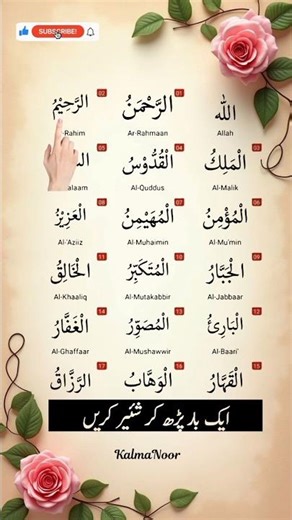 SUBSCRIBE!
الله الرَّحْمَنُ 01 الرَّحِيْمُ 02
Allah Ar-Rahmaan Rahim
الْمَلِكُ 03 الْقُدُّوْسُ 04
Al-Malik Al-Quddus alaam
الْمُؤْمِنُ 06 الْمُهَيْمِنُ 07 الْعَزِيْزُ 08
Al-Mu'min Al-Muhaimin Al-'Aziiz
الْجَبَّارُ 09 الْمُتَكَبِّرُ 10 الْخَالِقُ 11
Al-Jabbaar Al-Mutakabbir Al-Khaaliq
الْبَارِئُ 12 الْمُصَوِّرُ 13 الْغَفَّارُ 14
Al-Baari' Al-Mushawwir Al-Ghaffaar
الْقَهَّارُ 15 الْوَهَّابُ 16 الرَّزَّاقُ 17
ایک بار پڑھ کر شئیر کریں
KalmaNoor